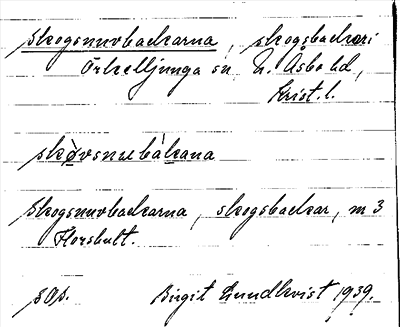 Skogsnuvbackarna, skogsbackar i
Örkelljunga sn N. Åsbo hd,
Krist. l.
skòvsnubàkana
Skogsnuvbackarna, skogsbackar, m 3
Florshult.
sop. Birgit Lundkvist 1939.